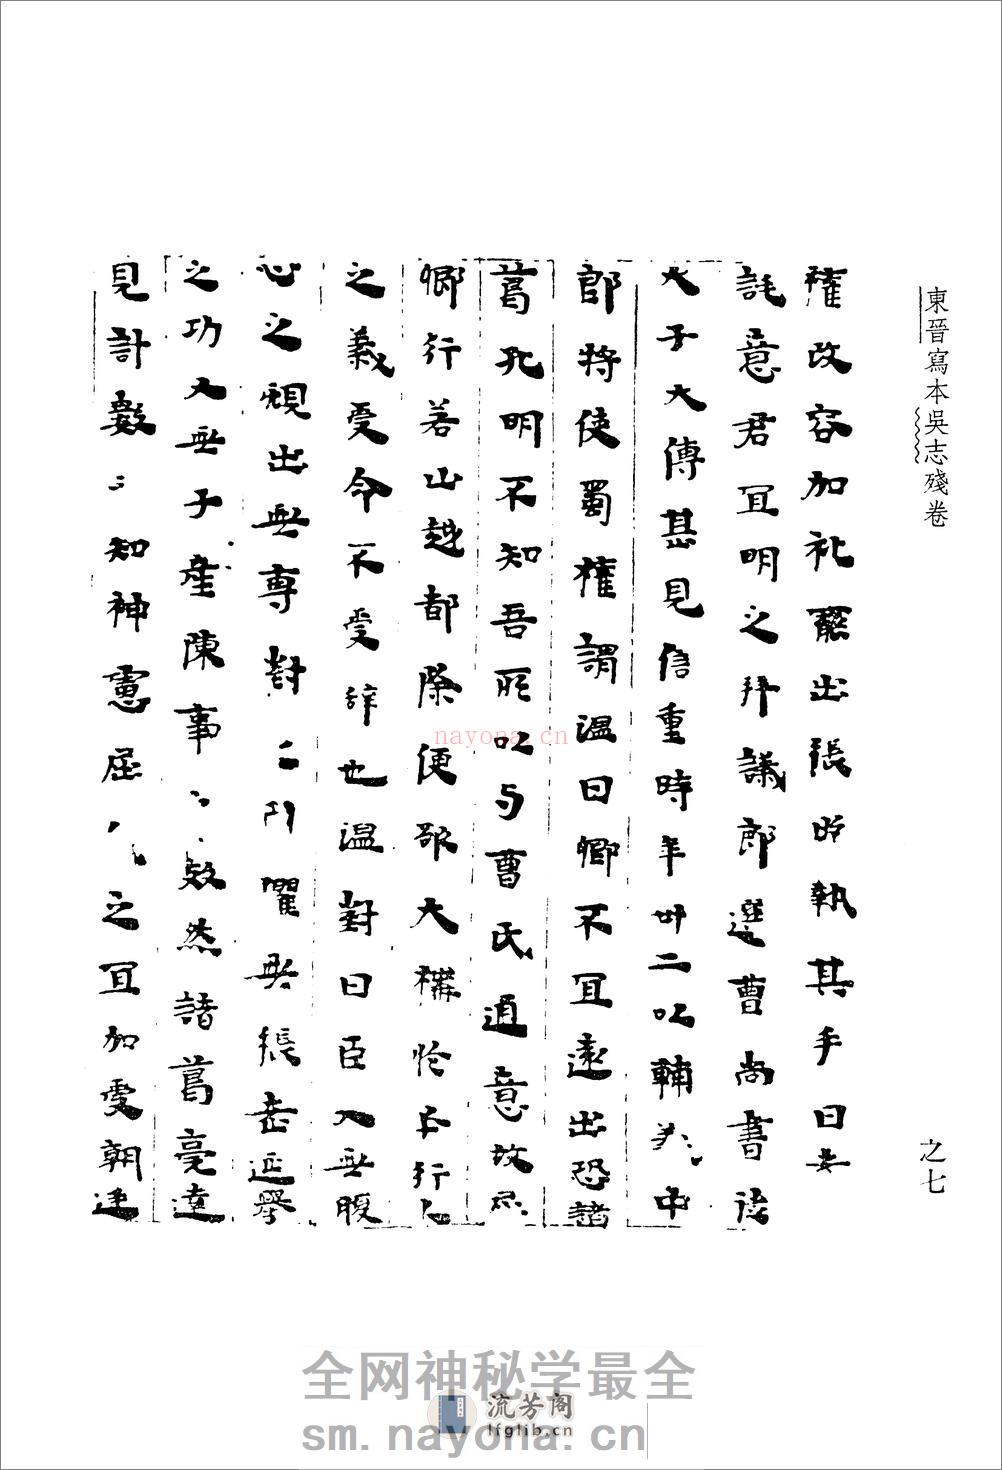 東晉寫本吳志殘卷
之七
權改容加礼罷出張昭執其手曰
託意君宜明之拜議郎選曹尚書
大子大傅甚見信重時年卅二以輔中
郎將使蜀權謂温曰卿不宜遠出恐諸
葛孔明不知吾所以与曹氏通意故
卿行若山越都除便欲大構行人
之義受命不受辞也温對曰臣入無腹
心之規出無專對懼無張老延譽
之功又無子產陳事效然諸葛亮達
見計數知神慮屈之宜加受朝廷
nayona.cn
全网神秘学最全
流芳阁
lfglib.cn
sm.nayona.cn